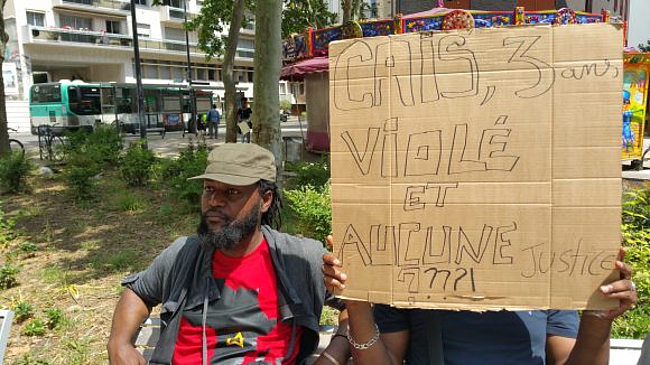 CAIS, 3 ans,
VIOLÉ
ET
AUCUNE Justice
????!